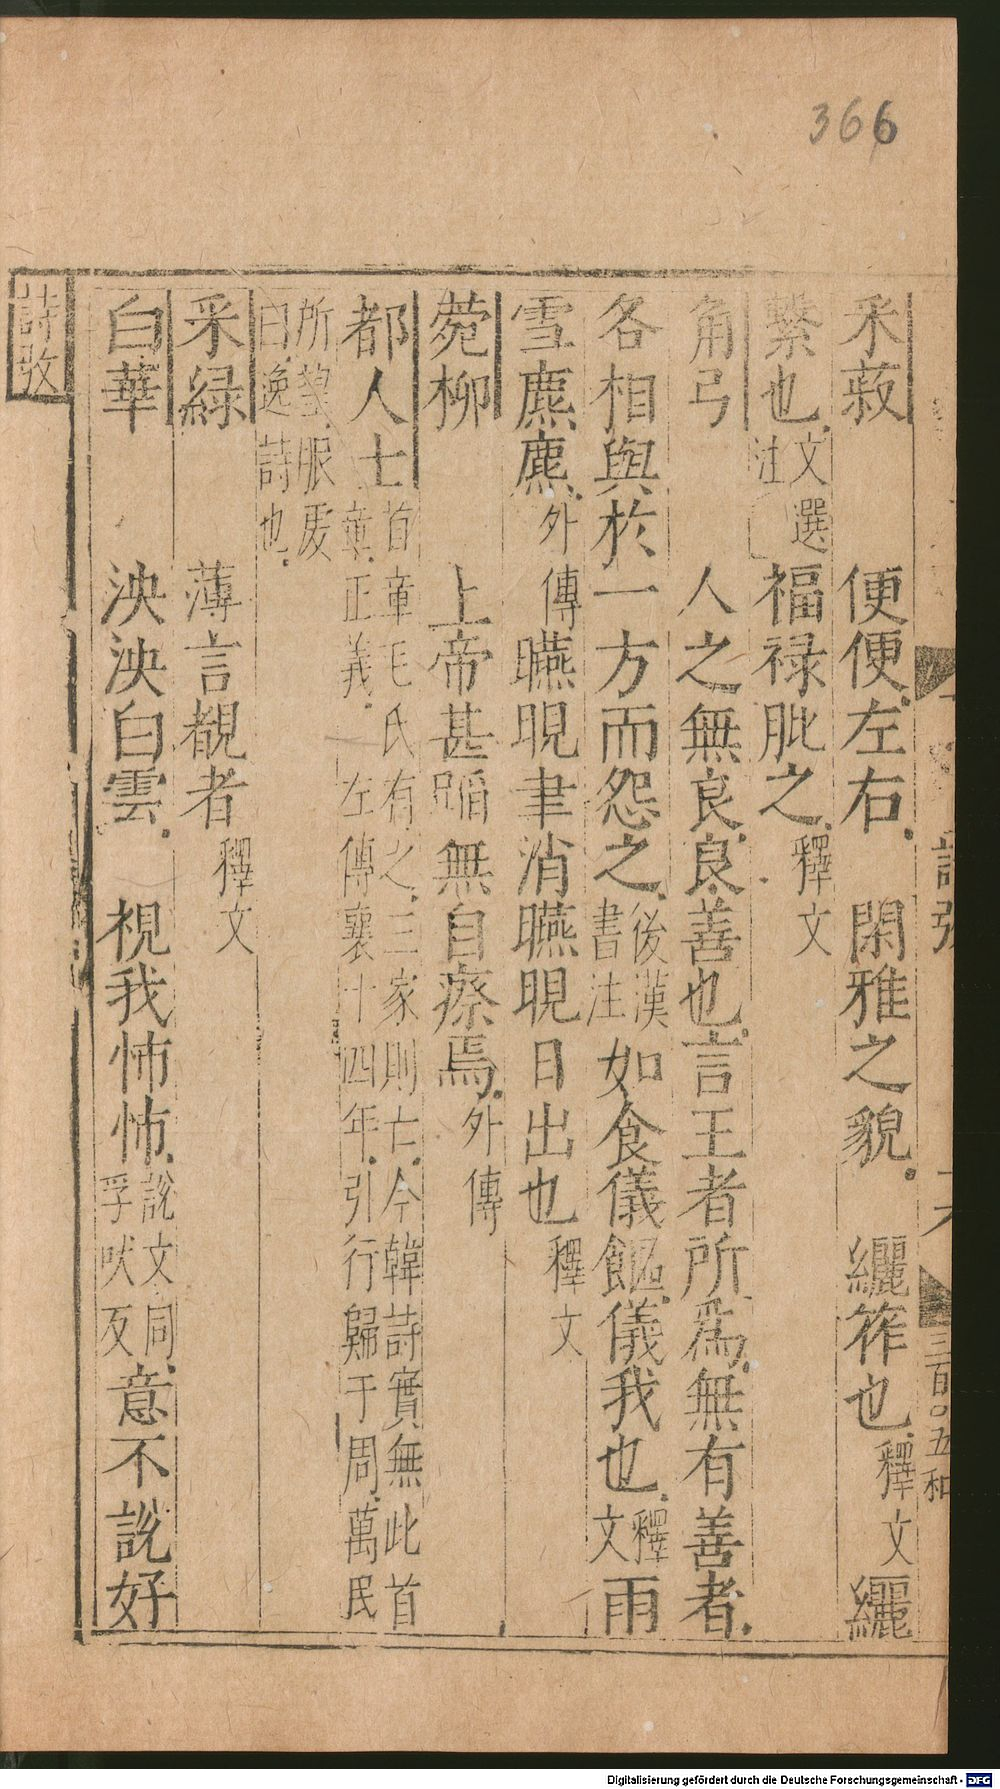 366
采菽　便便左右　閑雅之貌　纚筰也釋文纚
繫也文選注　福祿肶之釋文
角弓　人之無良良善也言王者所爲無有善者
各相與於一方而怨之後漢書注如食儀饇儀我也釋文雨
雪麃麃外傳曣晛聿消曣晛日出也釋文
菀柳　上帝甚慆無自瘵焉外傳
都人士首章毛氏有之三家則亡今韓詩實無此首章正義左傳襄十四年引行歸于周萬民
所望服虔曰逸詩也
采綠　薄言覩者釋文
白華　泱泱白雲　視我怖怖說文同孚吠反意不說好
詩攷
三百〇五
和
Digitalisierung gefördert durch die Deutsche Forschungsgemeinschaft - DFG